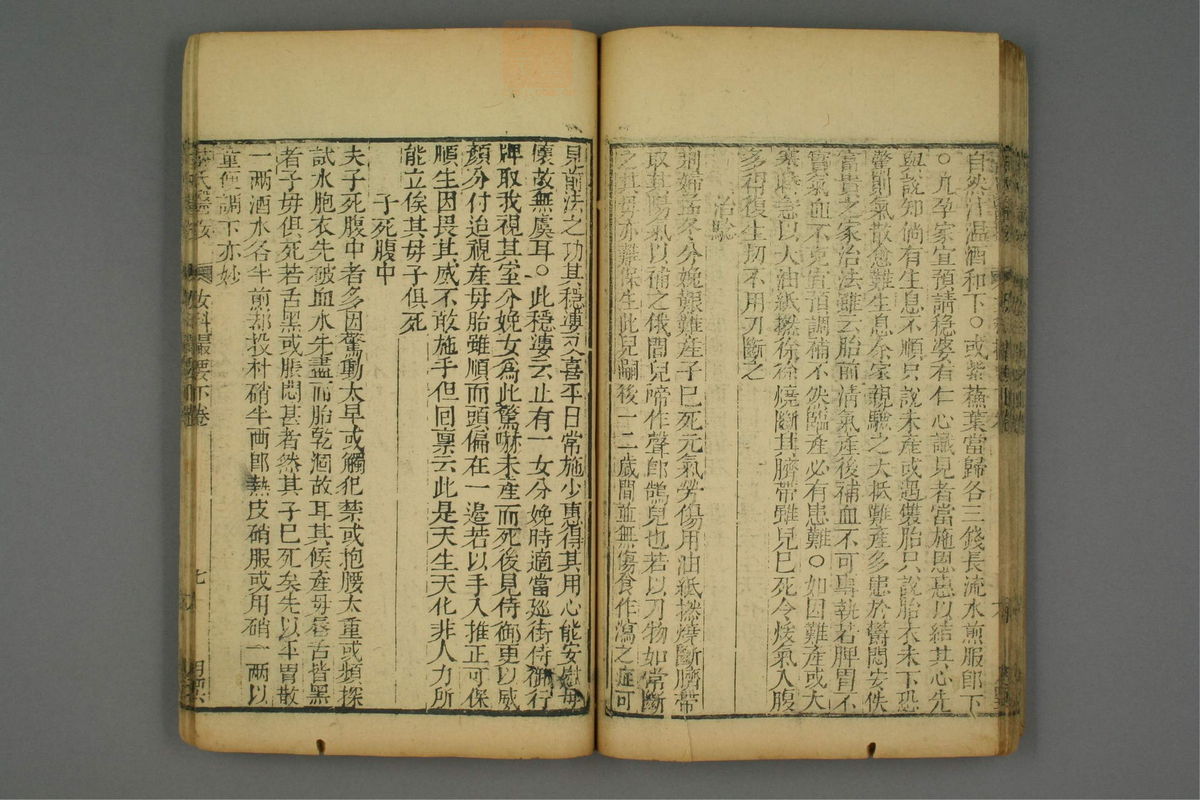 自然汁溫酒和下○或紫蘓葉當歸各三錢長流水煎服即下
○凢孕家宜預請穏婆有仁心識見者當施恩惠以結其心先
與說知倘有生息不順只說未産或遇雙胎只說胎衣未下恐
驚則氣散愈難生息余家親驗之大抵難産多患於欝悶安佚
富貴之家治法雖云胎前清氣産後補血不可專執若脾胃不
實氣血不充宜預調補不然臨産必有患難○如因難産或大
寒時急以大油紙撚徐徐燒斷其臍帶雖兒已死令煖氣入腹
多得復生切不用刀斷之
治驗
荊婦孟冬分娩艱難産子已死元氣勞傷用油紙撚燒斷臍帶
取其陽氣以補之俄間兒啼作聲即鵠兒也若以刀物如常斷
之其母亦難保生此兒嗣後一二歲間並無傷食作瀉之症可
見前法之功其穏婆又喜平日常施少惠得其用心能安慰母
懷故無虞耳○此穏婆云止有一女分娩時適當巡街侍御行
牌取我視其室分娩女為此驚嚇未産而死後見侍御更以威
顏分付迨視産母胎雖順而頭偏在一邉若以手入推正可保
順生因畏其威不敢施手但回禀云此是天生天化非人力所
能立俟其母子俱死
子死腹中
夫子死腹中者多因驚動太早或觸犯禁或抱腰太重或頻探
試水胞衣先破血水先盡而胎乾涸故耳其候産母唇舌皆黑
者子母俱死若舌黑或脹悶甚者然其子已死矣先以平胃散
一兩酒水各半煎却投朴硝半两即熱皮硝服或用硝一两以
童便調下亦妙
薛氏醫按 女科撮要下卷 七